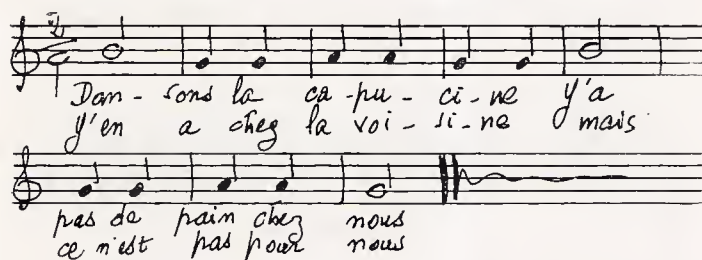 Dan-sons la ca-pu-ci-ne y'a
y'en a chez la voi-si-ne mais
pas de pain chez nous
ce n'est pas pour nous